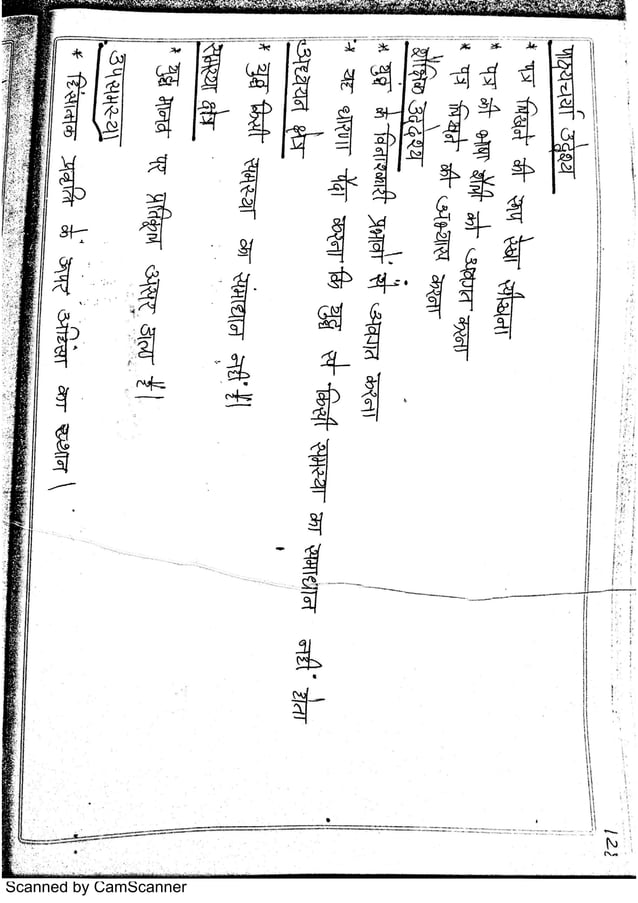 पाठ्यचर्या उद्देश्य
* पत्र लिखने की रूप रेखा सीखना
* पत्र की भाषा शैली को अवगत करना
* पत्र लिखने की अभ्यास करना
शैक्षिक उद्देश्य
* युद्ध के विनाशकारी प्रभावों से अवगत करना
* यह धारणा पैदा करना कि युद्ध से किसी समस्या का समाधान नहीं होता
अध्ययन क्षेत्र
* युद्ध किसी समस्या का संमाधान नहीं है।
समस्या क्षेत्र
* युद्ध मानव पर प्रतिकूल असर डाला है।
उपसमस्या
* हिंसात्मक प्रवृत्ति के ऊपर अहिंसा का स्थान।
123
Scanned by CamScanner